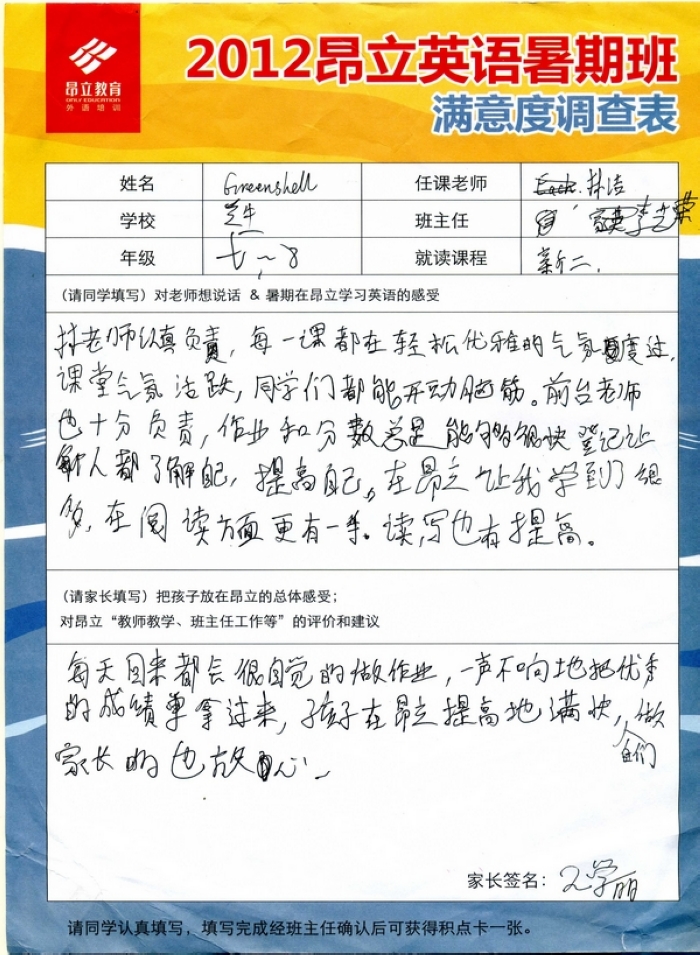 昂立教育
ONLY EDUCATION
外语培训
2012昂立英语暑期班
满意度调查表
姓名 Greenshell 任课老师 林洁
学校 芝牛 班主任 李芝荣
年级 七~8 就读课程 新二.
(请同学填写)对老师想说话 & 暑期在昂立学习英语的感受
林老师认真负责,每一课都在轻松优雅的气氛度过,
课堂气氛活跃,同学们都能开动脑筋。前台老师
也十分负责,作业和分数总是能够很快登记让
每人都了解自己,提高自己。在昂立让我学到了很
多,在阅读方面更有一手。读,写也有提高。
(请家长填写)把孩子放在昂立的总体感受;
对昂立“教师教学、班主任工作等”的评价和建议
每天回来都会很自觉的做作业,一声不响地把优秀
的成绩单拿过来,孩子在昂立提高地满快,做
家长的也放心
家长签名:
请同学认真填写,填写完成经班主任确认后可获得积点卡一张。